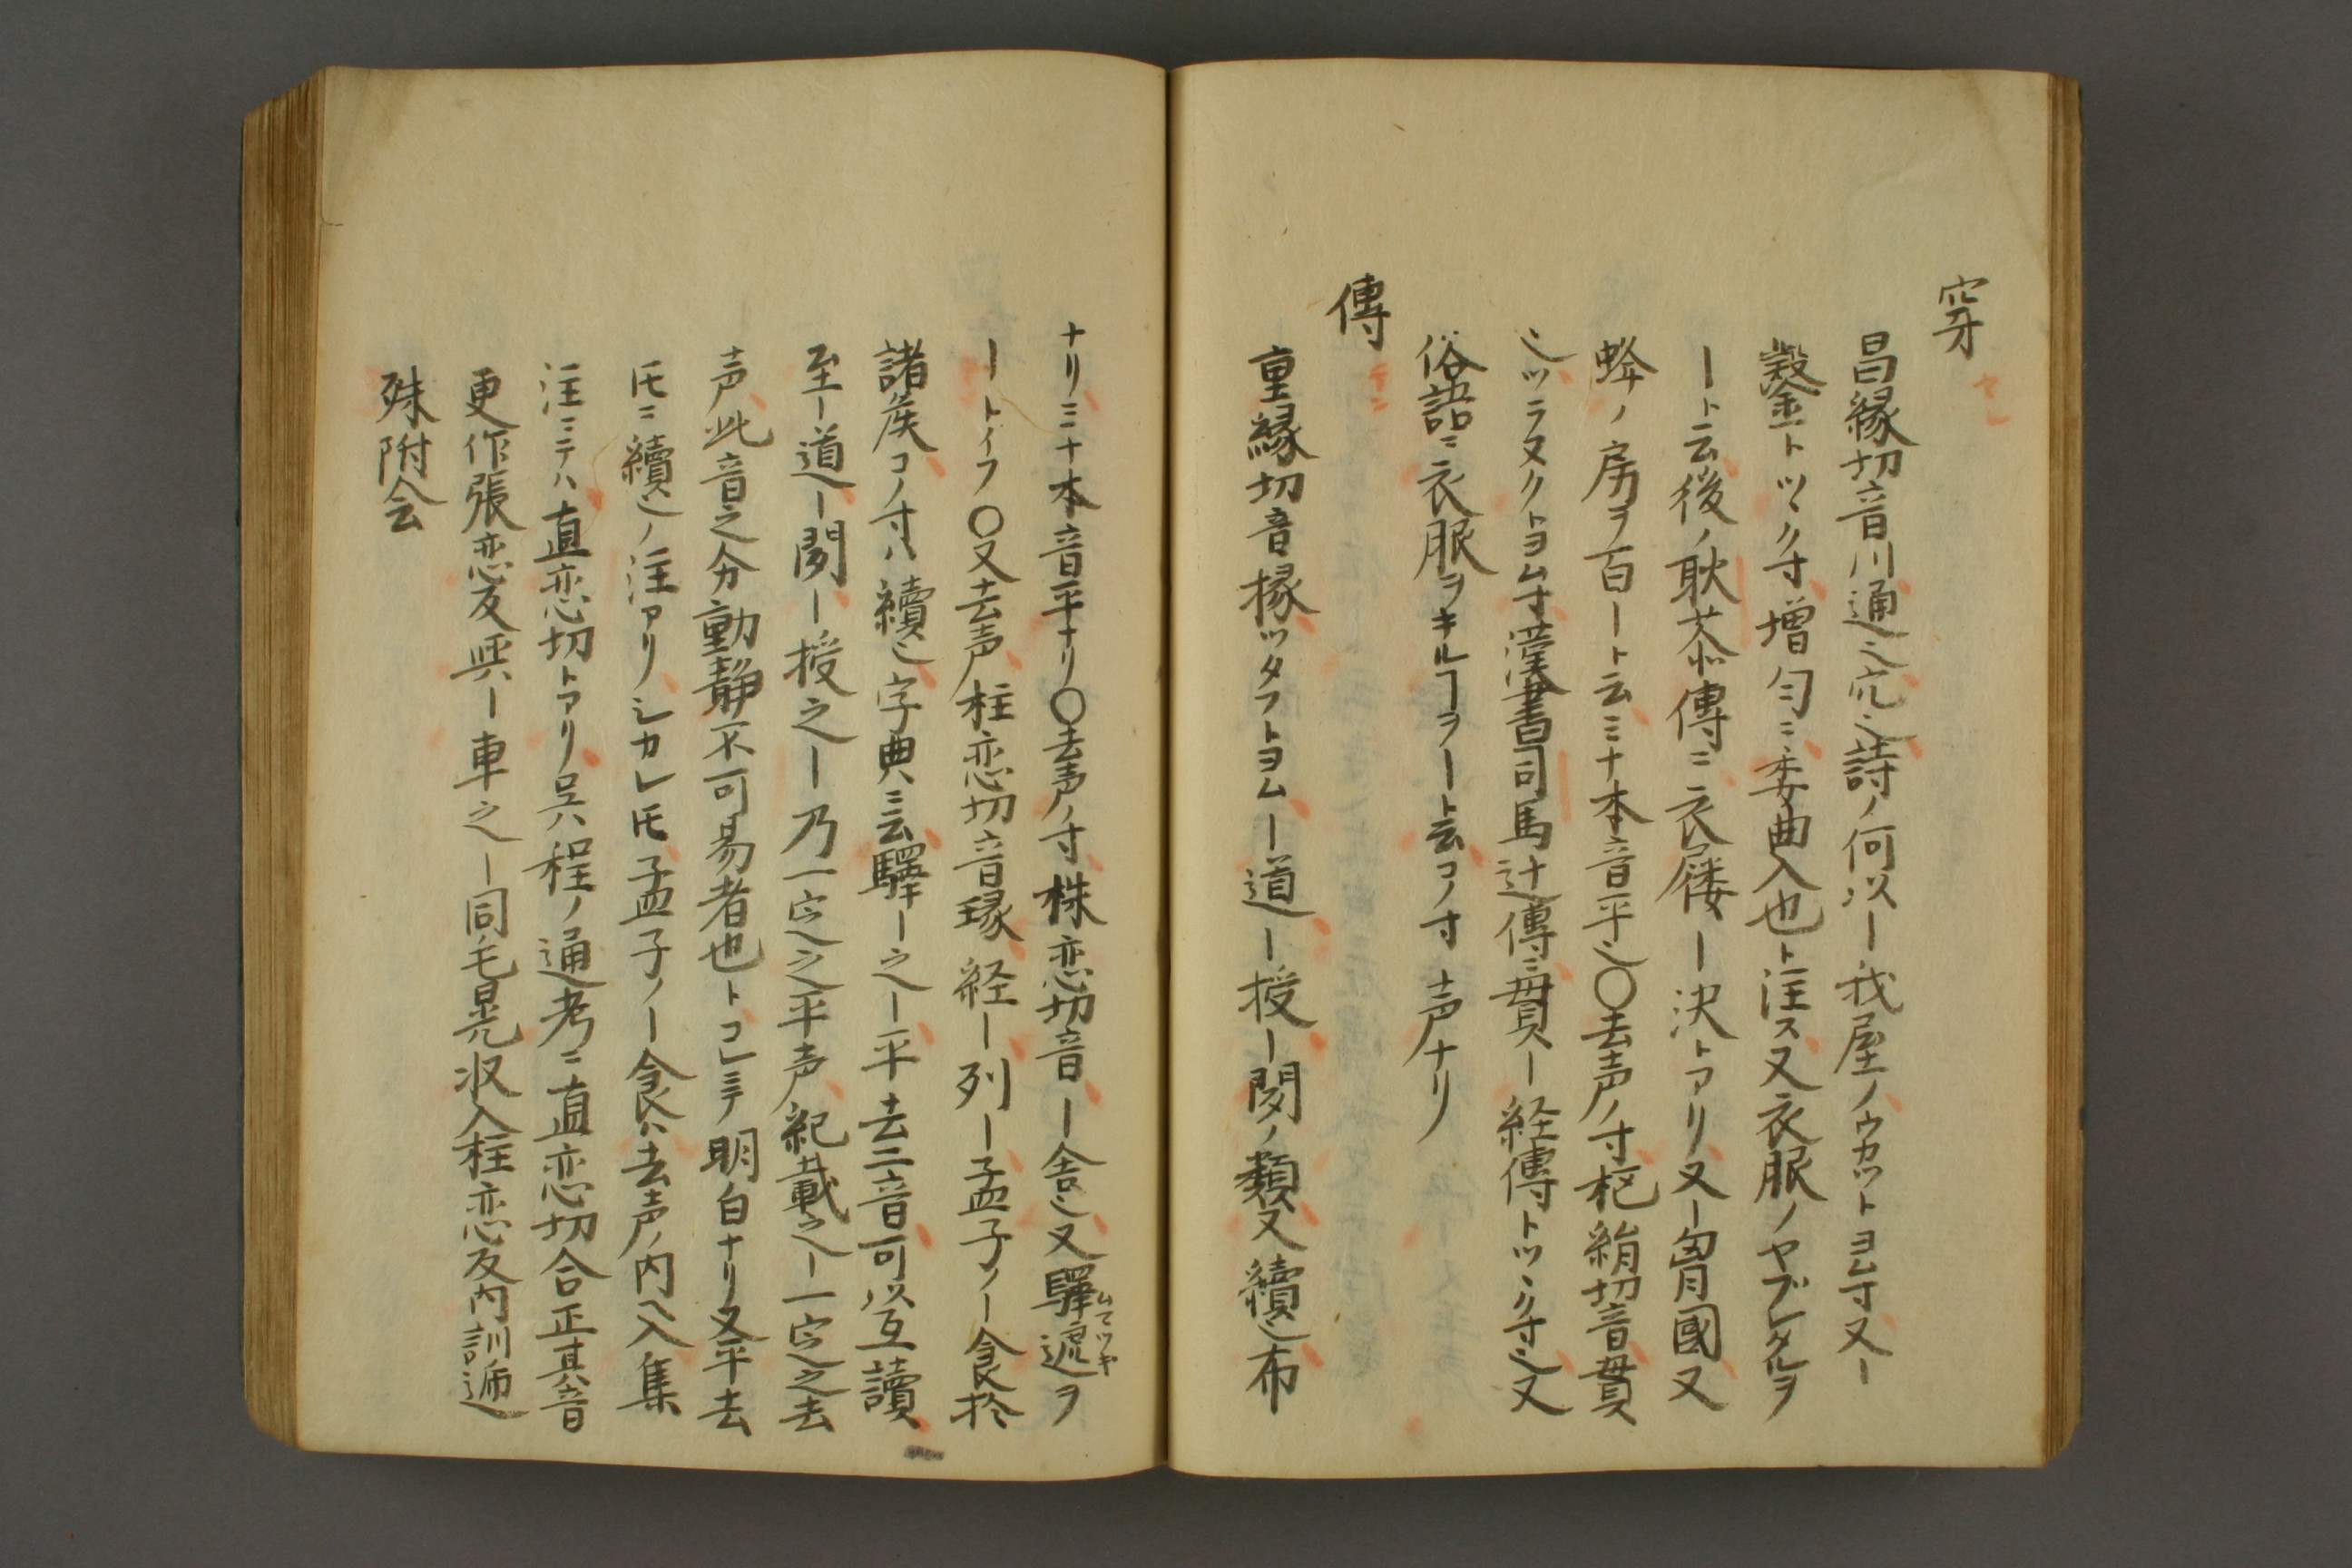 穿
セン
昌縁切音川通之穴之詩ノ何以ー我屋ノウカツトヨム寸又ー
鑿トツヾク寸増匀ニ委曲入也ト注ス又衣服ノヤブレタルヲ
ート云後ノ耿恭傳ニ衣屨ー決トアリ又ー胷國又
蜂ノ房ヲ百ート云ミナ本音平之〇去声ノ寸枢絹切音貫
之ツラヌクトヨム寸漢書司馬迁傳ニ貫ー経傳トツヾク寸之又
俗語ニ衣服ヲキルヿヲート云コノ寸去声ナリ
傳
テン
重縁切音椽ツタフトヨムー道ー授ー聞ノ類又續之布
ナリミナ本音平ナリ〇去声ノ寸株恋切音ー舎之又驛遞ヲ
ムマツギ
ートイフ〇又去声柱恋切音瑑経ー列ー孟子ノー食於
諸侯コノ寸ハ續之字典ニ云驛ー之ー平去二音可以互讀
至ー道ー聞ー授之ー乃一定之平声紀載之ー一定之去
声此音之分動静不可易者也トコレニテ明白ナリ又平去
圧ニ續之ノ注アリシカレ圧孟子ノー食ハ去声ノ内ヘ入集
注ニテハ直恋切トアリ呉程ノ通考ニ直恋切合正其音
更作張恋反與ー車之ー同毛晃収入柱恋反内訓逓
殊附会